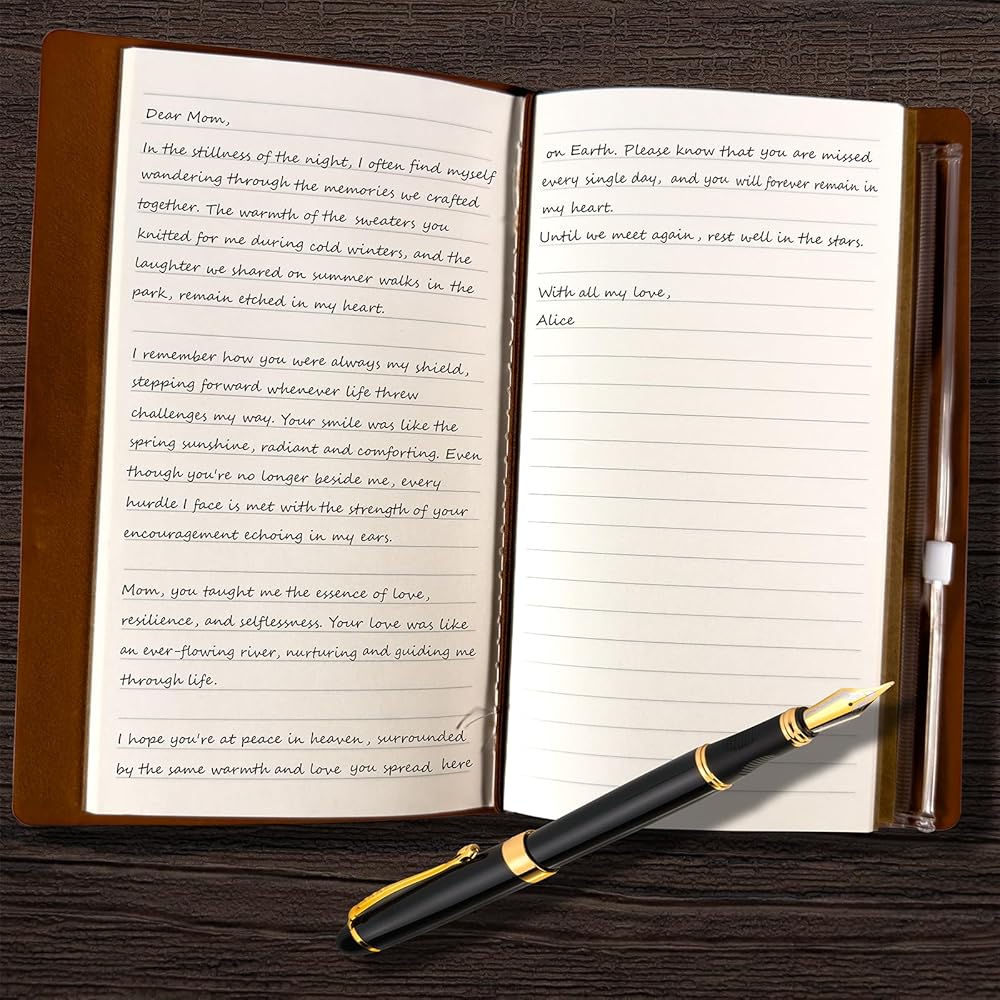 Dear Mom,
In the stillness of the night, I often find myself
wandering through the memories we crafted
together. The warmth of the sweaters you
knitted for me during cold winters, and the
laughter we shared on summer walks in the
park, remain etched in my heart.
I remember how you were always my shield,
stepping forward whenever life threw
challenges my way. Your smile was like the
spring sunshine, radiant and comforting. Even
though you're no longer beside me, every
hurdle I face is met with the strength of your
encouragement echoing in my ears.
Mom, you taught me the essence of love,
resilience, and selflessness. Your love was like
an ever-flowing river, nurturing and guiding me
through life.
I hope you're at peace in heaven, surrounded
by the same warmth and love you spread here
on Earth. Please know that you are missed
every single day, and you will forever remain in
my heart.
Until we meet again, rest well in the stars.
With all my love,
Alice